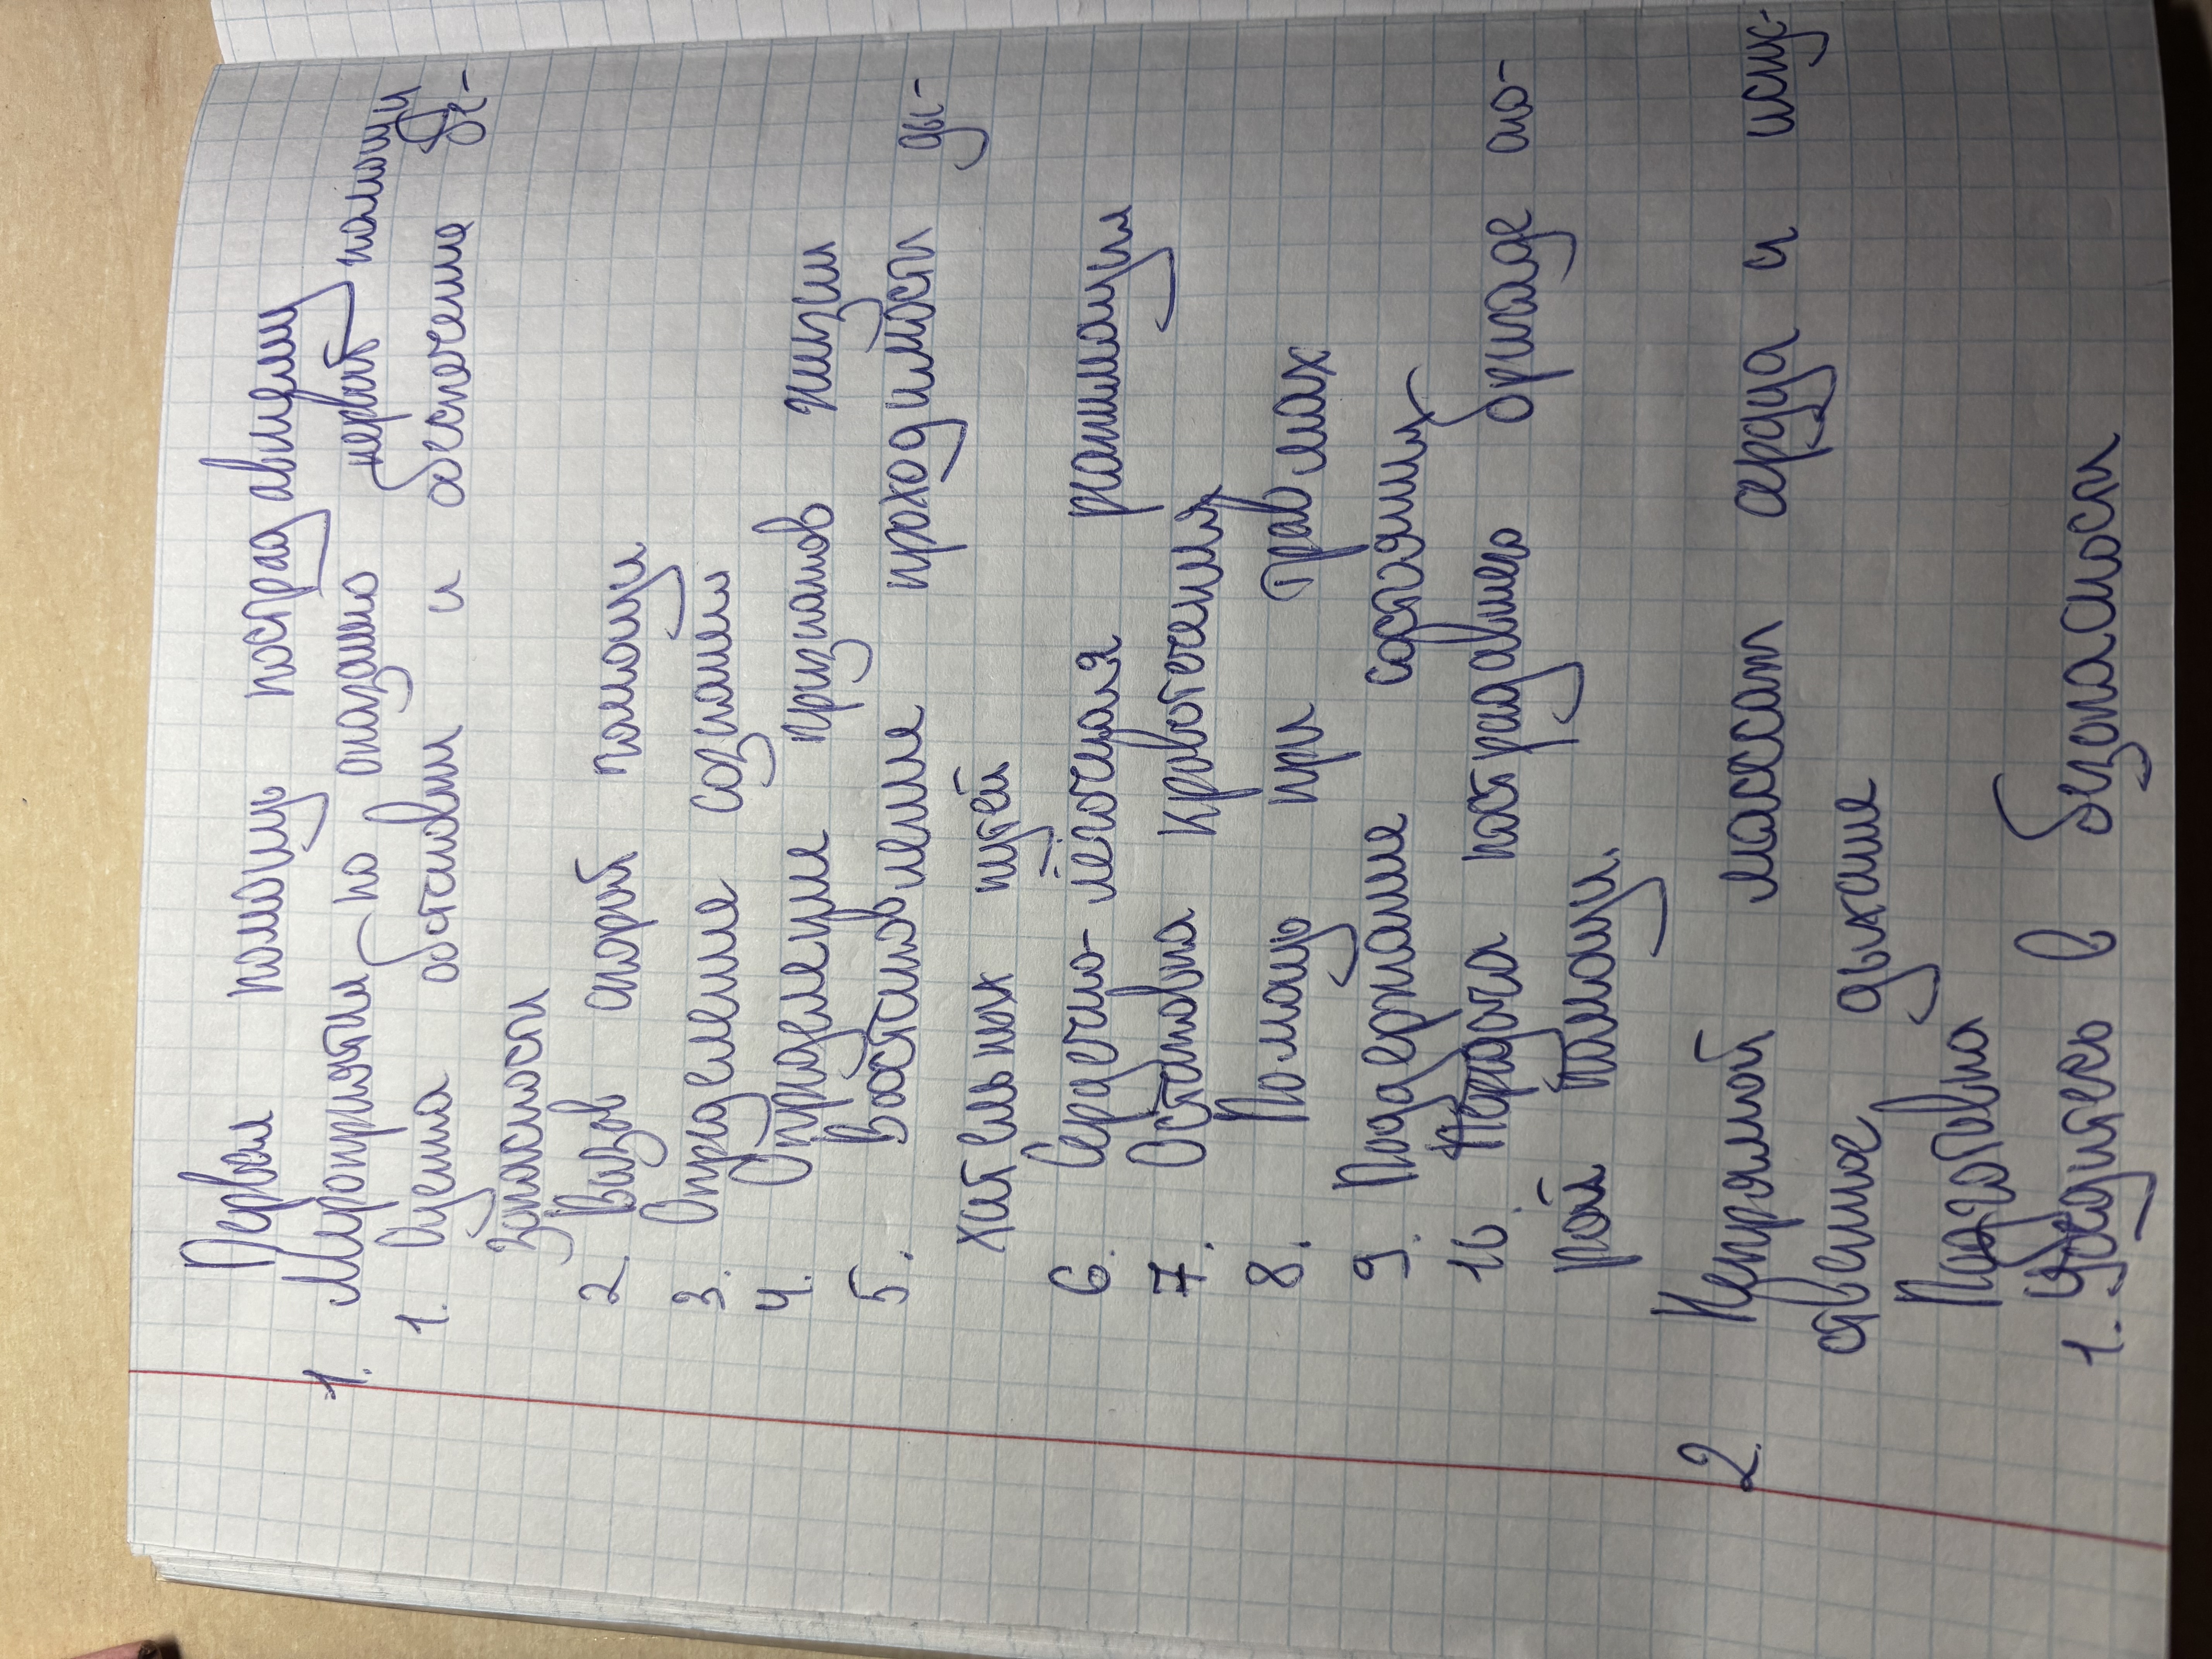 Первая помощь пострадавшему
1. Мероприятия по оказанию первой помощи
1. Оценка обстановки и обеспечение бе-
зопасности
2. Вызов скорой помощи
3. Определение сознания
4. Определение признаков жизни
5. Востановление проходимости ды-
хательных путей
6. Сердечно-лёгочная реанимации
7. Остановка кровотечения
8. Помощь при травмах
9. Подержание состояния
10. Передача пострадавшего бригаде ско-
рой помощи.
2. Непрямой массаж сердца и искус-
ственное дыхание
Подготовка
1. Убедитесь в безопасности